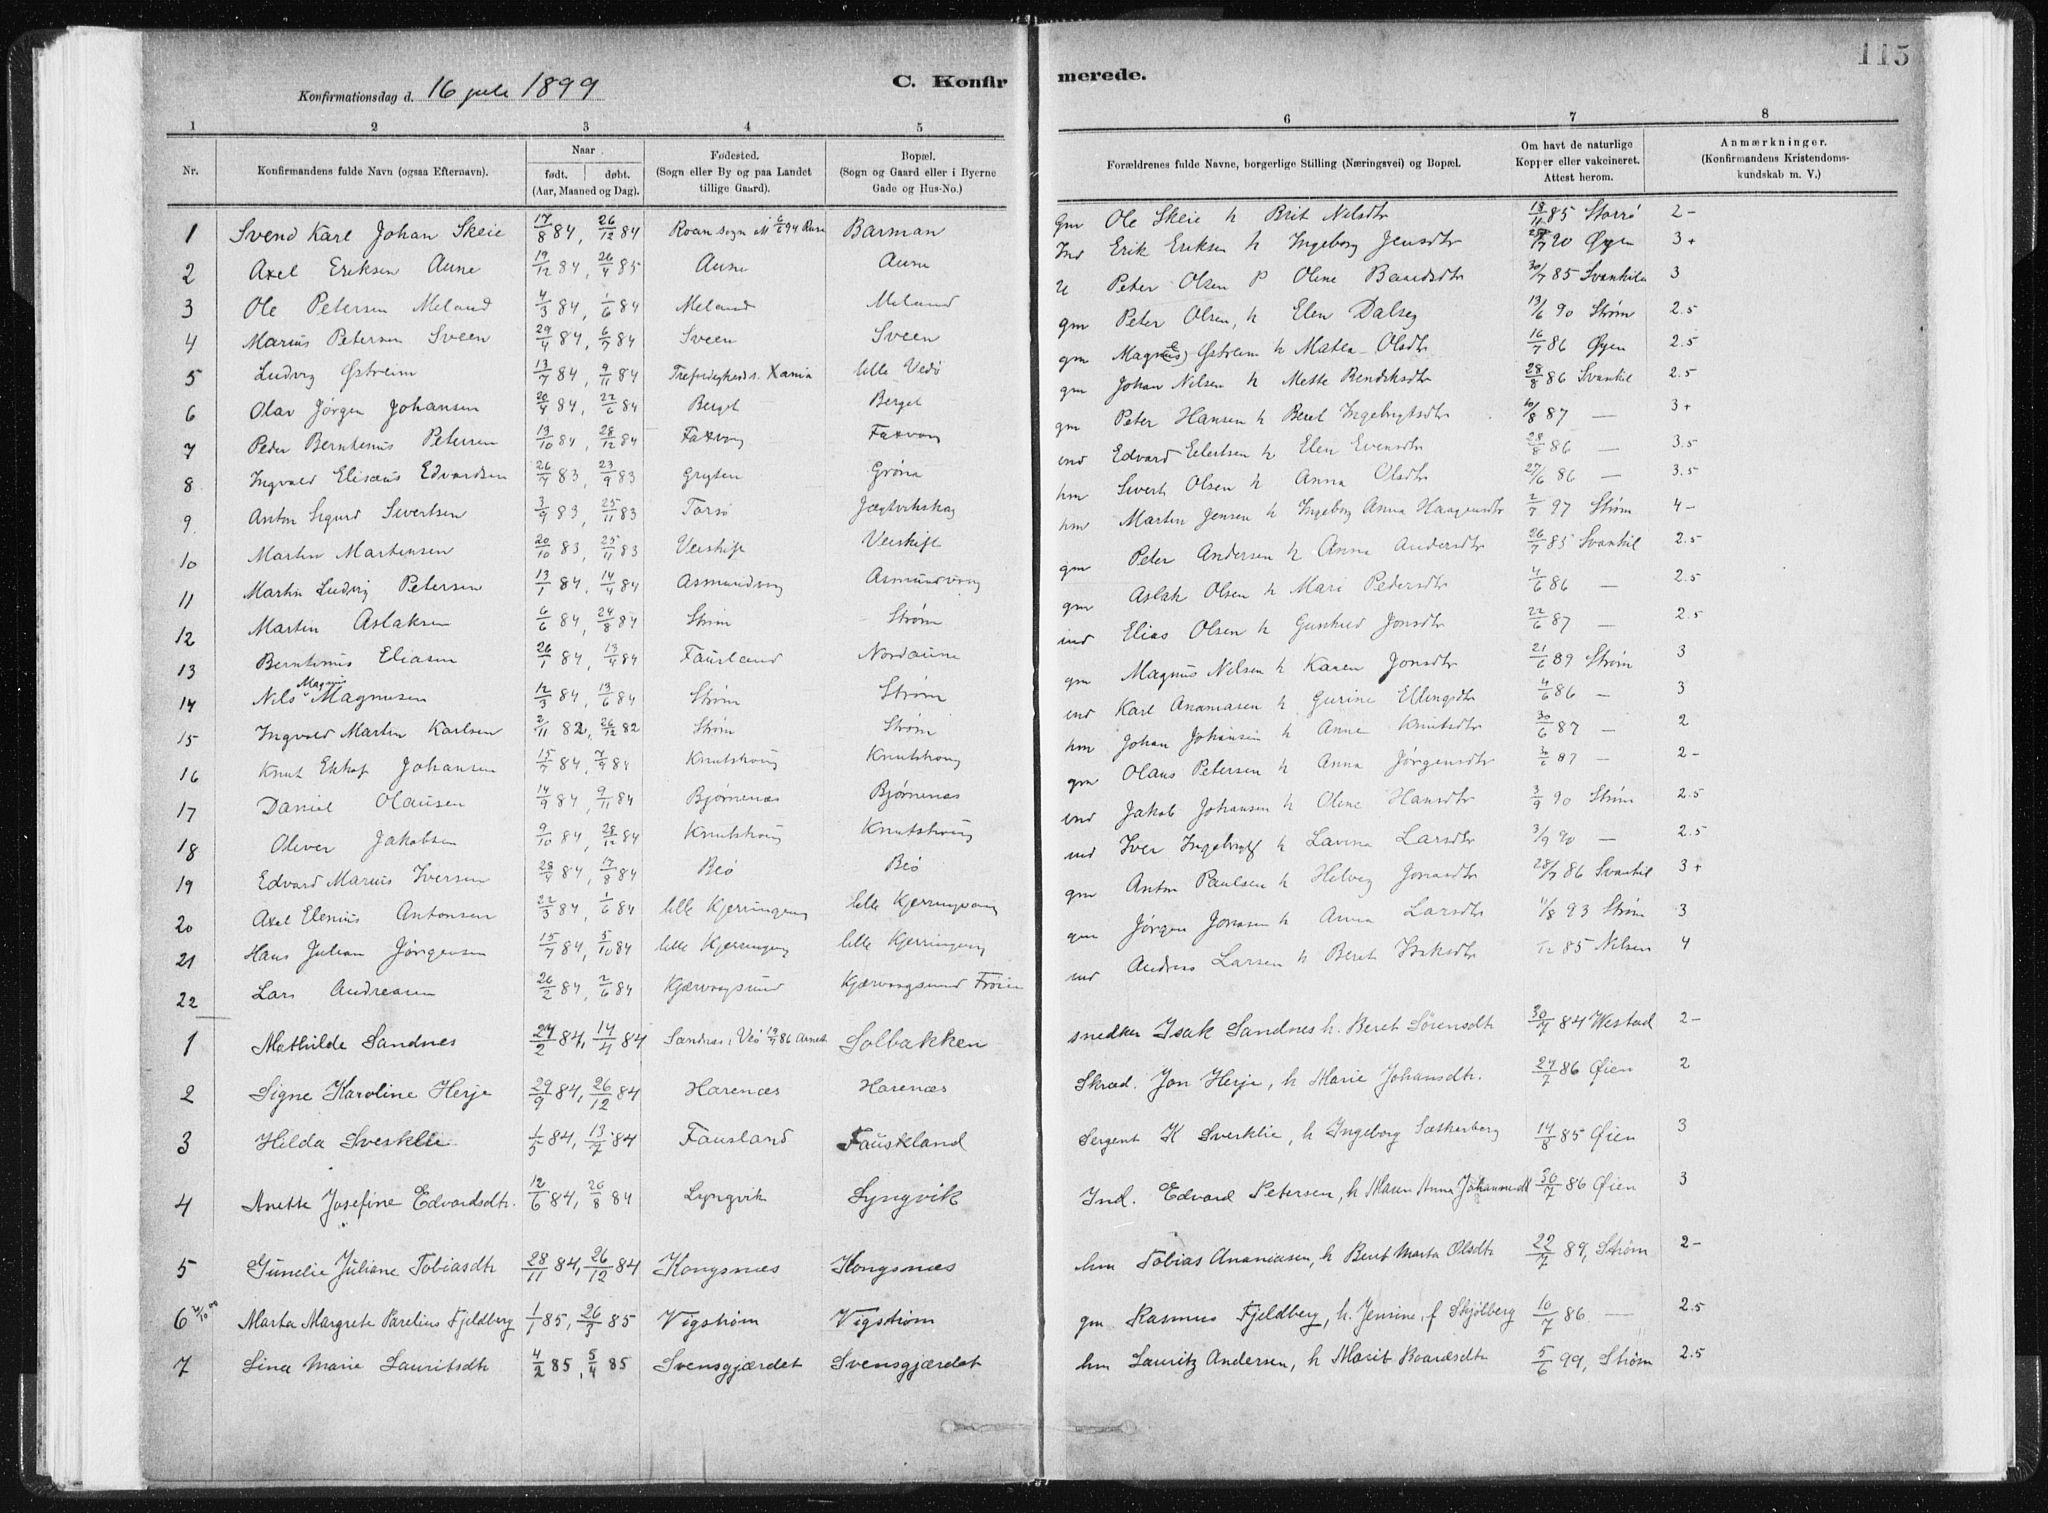 115
Konfirmationsdag d. 16 juli 1899
C. Konfirmerede.
1 2 3 4 5 6 7 8
Nr. Konfirmandens fulde Navn (ogsaa Efternavn). Naar født. døbt. (Aar, Maaned og Dag). Fødested. (Sogn eller By og paa Landet tillige Gaard). Bopæl. (Sogn og Gaard eller i Byerne Gade og Hus-No.) Forældrenes fulde Navne, borgerlige Stilling (Næringsvei) og Bopæl. Om havt de naturlige Kopper eller vakcineret. Attest herom. Anmærkninger. (Konfirmandens Kristendomskundskab m. V.)
1 Svend Karl Johan Skeie 17/8 84, 26/12 84 Roan sogn Barman gm Ole Skeie h Brit Nilsdtr 18/11 85 Storrø 2-
2 Axel Eriksen Aune 19/12 84, 26/4 85 Aune Aune Ind Erik Eriksen h Ingeborg Jensdtr 90 Øyen 3+
3 Ole Petersen Meland 4/3 84, 1/6 84 Meland Meland u Peter Olsen P Oline Baardsdtr 30/7 85 Svankild 3
4 Marius Petersen Sveen 29/4 84, 6/7 84 Sveen Sveen gm Peter Olsen, h Elen Dalseg 13/6 90 Strøm 2.5
5 Ludvig Østreim 13/7 84, 9/11 84 Trefoldigheds s. Xania lille Vedø gm Magnus Østreim h Matea Olsdtr 16/7 86 Øyen 2.5
6 Olav Jørgen Johansen 20/4 84, 22/6 84 Berget Berget gm Johan Nilsen h Mette Bendiksdtr 28/8 86 Svankil 2.5
7 Peder Berntinus Petersen 13/10 84, 28/12 84 Faxvaag Faxvaag gm Peter Hansen h Beret Ingebrigtsdtr 10/8 87 — 3+
8 Ingvald Eliseus Edvardsen 26/7 83, 23/9 83 Gryten Grøna ind Edvard Eilertsen h Elen Evensdtr 28/8 86 — 3.5
9 Anton Sigurd Sivertsen 3/9 83, 25/11 83 Torsø Jægtvikshag hm Sivert Olsen h Anna Olsdtr 27/6 86 — 3.5
10 Martin Martinsen 20/10 83, 25/11 83 Veiskift Veiskift hm Martin Jensen h Ingeborg Anna Haagensdtr 2/7 97 Strøm 4-
11 Martin Ludvig Petersen 13/1 84, 14/4 84 Asmundvaag Asmundvaag gm Peter Andersen h Anna Andersdtr 26/7 85 Svankil 2.5
12 Martin Aslaksen 6/6 84, 24/8 84 Strøm Strøm gm Aslak Olsen h Mari Pedersdtr 4/6 86 — 2.5
13 Berntinus Eliasen 26/1 84, 13/4 84 Fausland Nordaune ind Elias Olsen h Gunhild Jonsdtr 22/6 87 — 2.5
14 Nils Magnus Magnusen 12/3 84, 13/6 84 Strøm Strøm gm Magnus Nilsen h Karen Jonsdtr 21/6 89 Strøm 3
15 Ingvald Martin Karlsen 2/11 82, 26/12 82 Strøm Strøm ind Karl Ananiasen h Gurine Ellingsdtr 4/6 86 — 3
16 Knut Ekhof Johansen 15/7 84, 7/9 84 Knutshaug Knutshaug hm Johan Johansen h Anne Knutsdtr 30/6 87 — 2
17 Daniel Olausen 14/9 84, 9/11 84 Bjørnenæs Bjørnenæs gm Olaus Petersen h Anna Jørgensdtr 30/6 87 — 2-
18 Oliver Jakobsen 9/10 84, 28/12 84 Knutshaug Knutshaug ind Jakob Johansen h Oline Hansdtr 3/9 90 Strøm 2.5
19 Edvard Marius Iversen 28/4 84, 17/8 84 Beø Beø ind Iver Ingebrigts h Lavina Larsdtr 3/9 90 — 2.5
20 Axel Elenius Antonsen 22/3 84, 1/6 84 lille Kjerringvaag lille Kjerringvaag gm Anton Paulsen h Helvig Jonasdtr 28/7 86 Svankil 3+
21 Hans Julian Jørgensen 15/7 84, 5/10 84 lille Kjerringvaag lille Kjerringvaag gm Jørgen Jonasen h Anna Larsdtr 11/8 93 Strøm 3
22 Lars Andreasen 26/2 84, 2/6 84 Kjærvaagsund Kjærvaagsund Frøien ind Andreas Larsen h Beret Isaksdtr 85 Nilsen 4
1 Mathilde Sandnes 27/2 84, 14/4 84 Sandnes i Veø Solbakken snedker Isak Sandnes h. Beret Sørensdtr 30/7 84 Westad 2-
2 Signe Karoline Herje 29/9 84, 26/12 84 Harenæs Harenæs Skræd. Jon Herje, h Marie Johansdtr. 27/7 86 Øien 2
3 Hilda Sverklie 1/5 84, 13/7 84 Fausland Fauskland Sergent K Sverklie, h Ingeborg Sætherberg 14/8 85 Øien 3
4 Anette Josefine Edvardsdtr. 12/6 84, 26/8 84 Lyngvik Lyngvik Ind. Edvard Petersen, h Maren Anna Johannesdt 30/7 86 Øien 3
5 Gunelie Juliane Tobiasdtr 28/11 84, 26/12 84 Kongsnæs Kongsnæs hm Tobias Ananiasen, h Beret Marta Olsdtr 22/7 89, Strøm 2-
6 Marta Margrete Parelius Fjeldberg 1/1 85, 26/3 85 Vigstrøm Vigstrøm gm Rasmus Fjeldberg, h. Jensine, f Skjølberg 10/7 86 — 2.5
7 Lina Marie Lauritsdtr 4/2 85, 5/4 85 Svensgjærdet Svensgjærdet hm Lauritz Andersen, h Marit Baardsdtr 5/6 99, Strøm 2.5